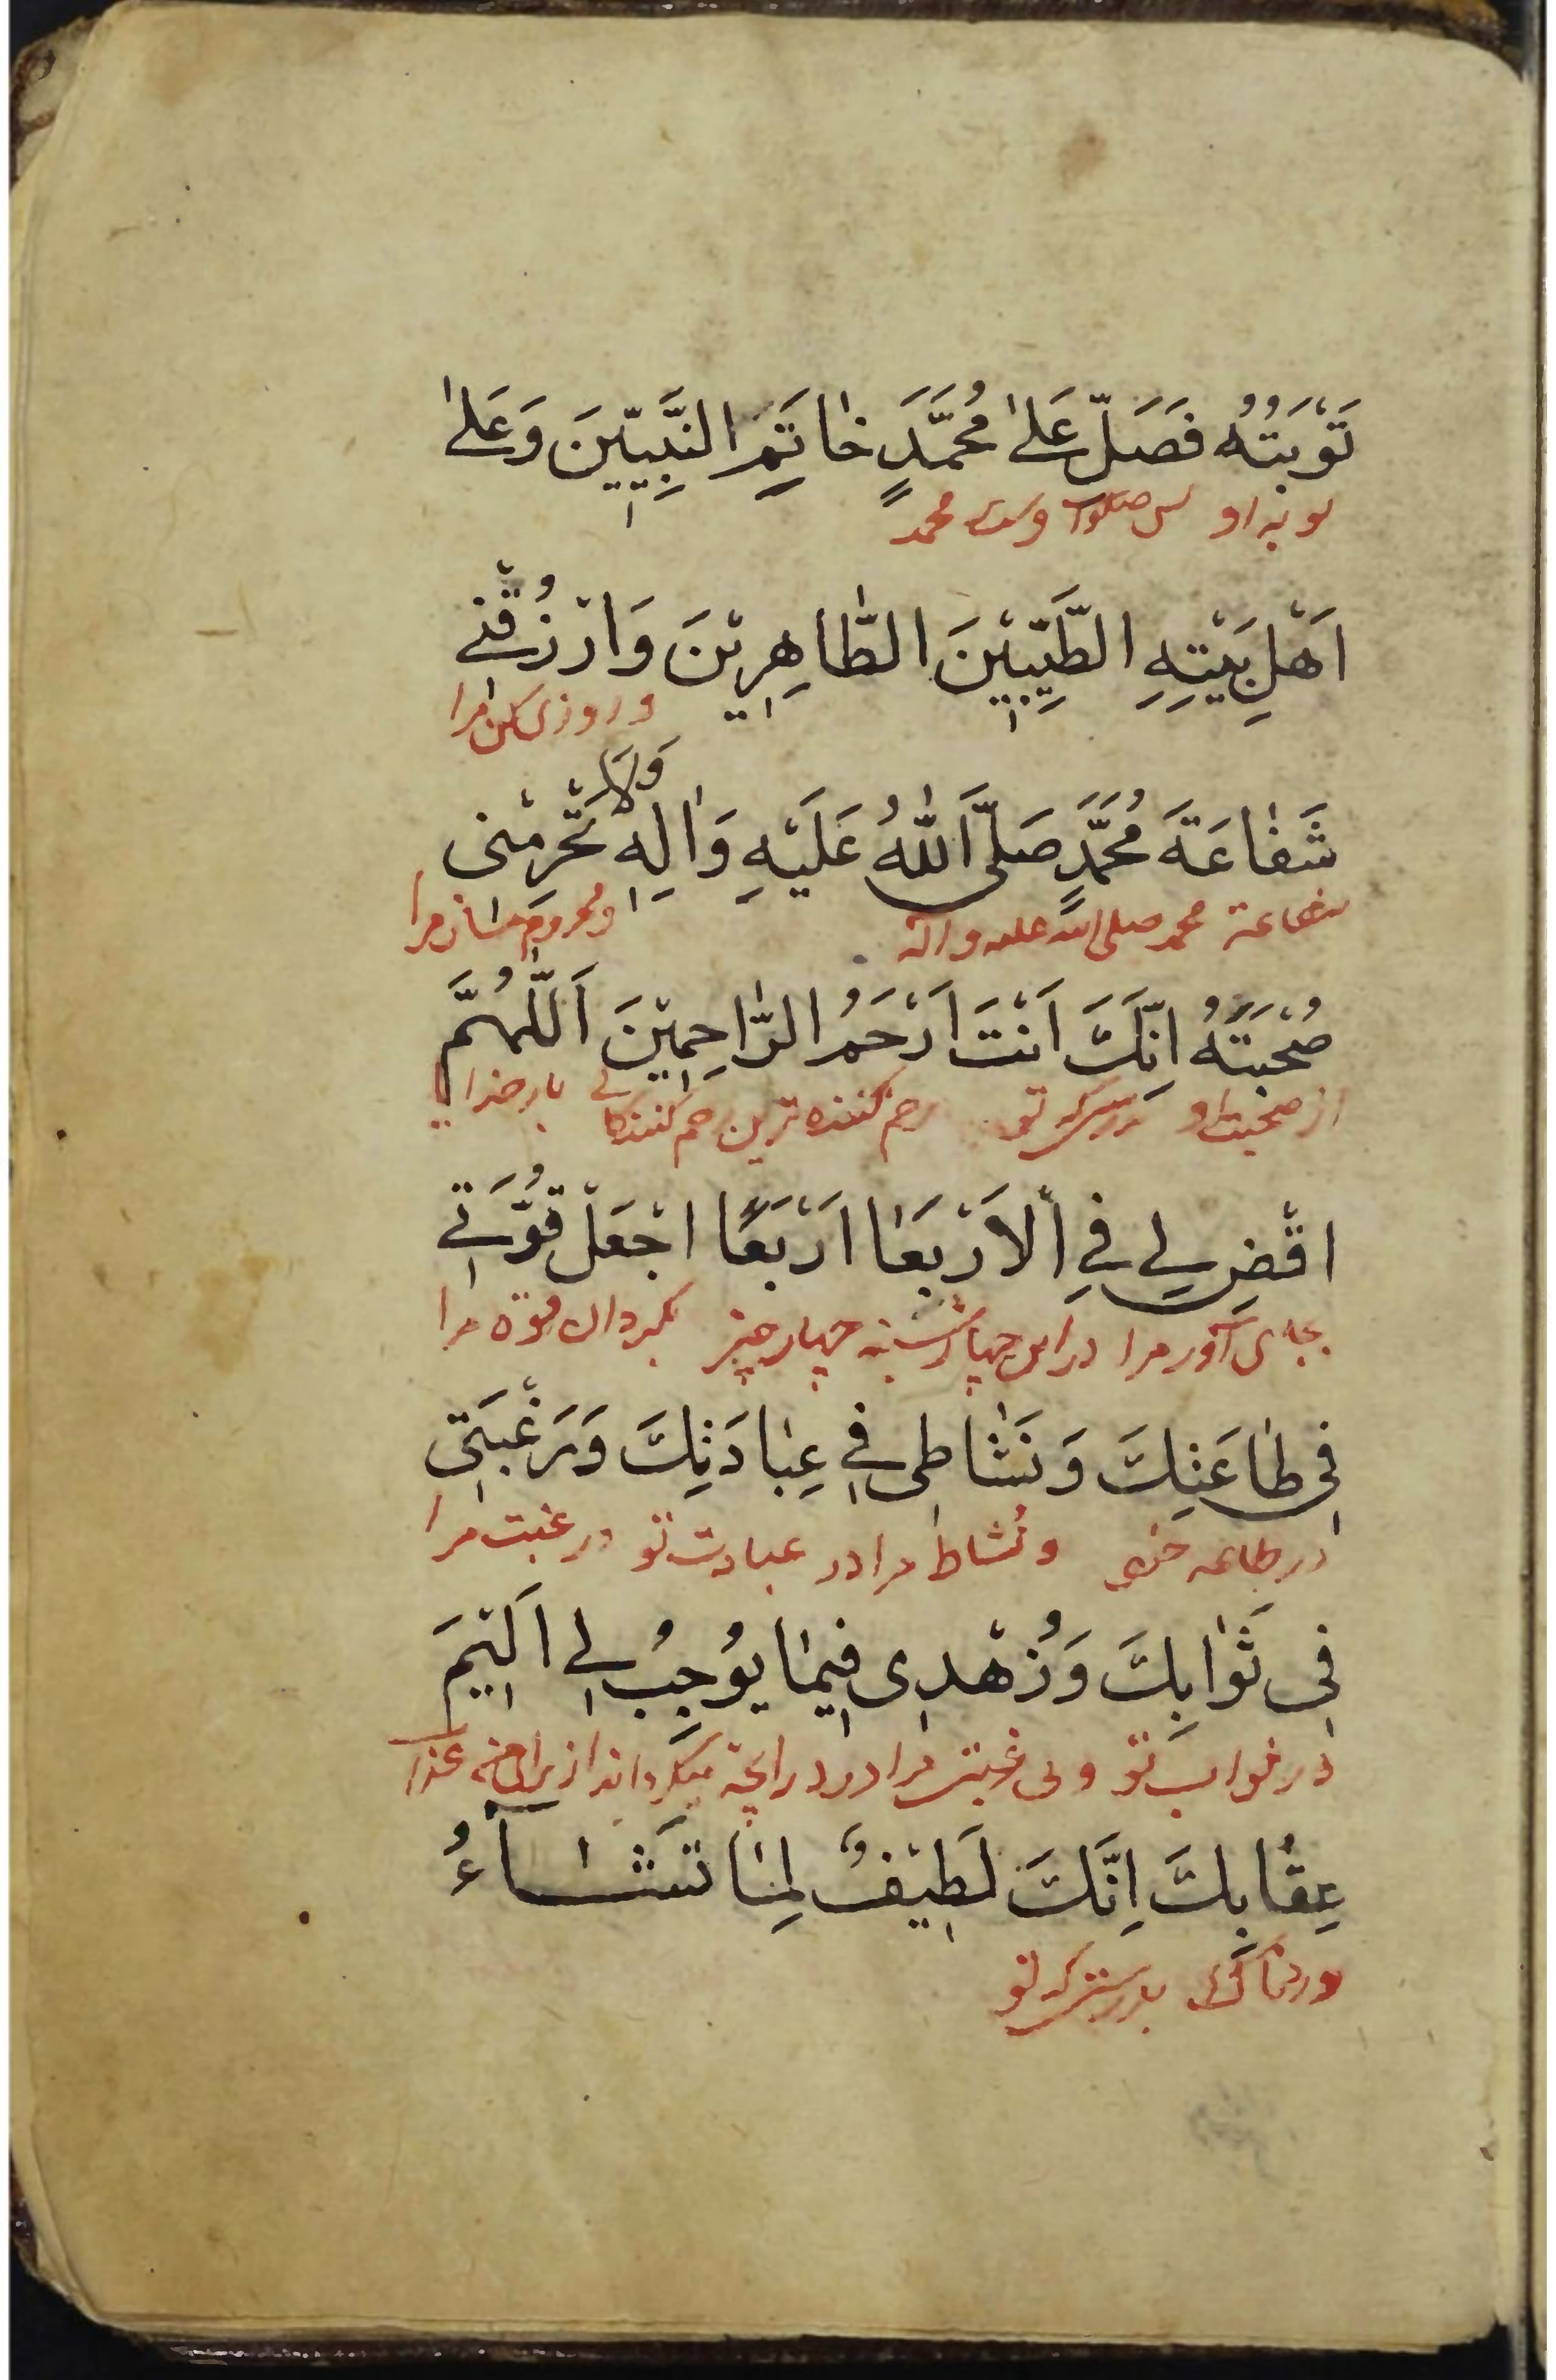 تَوْبَتُهُ فَصَلِّ عَلىٰ مُحَمَّدٍ خٰاتَمِ النَّبِيّٖينَ وَعَلىٰ
توبه او پس صلوات محمد
اَهْلِ بَيْتِهِ الطَّيِّبٖيْنَ الطّٰاهِرٖيْنَ وَارْزُقْنٖے
و روزی کن مرا
وَلاٰ
شَفٰاعَةَ مُحَمَّدٍ صَلَّى اللّٰهُ عَلَيْهِ وَاٰلِهِ تَحْرِمْنٖى
شفاعة محمد صلی الله علیه و اله و محروم مساز مرا
صُحْبَتَهُ اِنَّكَ اَنْتَ اَرْحَمُ الرّٰاحِمٖيْنَ اَللّٰهُمَّ
از صحبت او بدرستیکه تو رحم کننده ترین رحم کنندکانی بار خدایا
اقْضِ لٖے فِے الْاَرْبَعٰا اَرْبَعًا اجْعَلْ قُوَّتٖے
بجای آور مرا در این چهارشنبه چهار چیز بگردان قوة مرا
فٖى طٰاعَتِكَ وَنَشٰاطٖى فٖے عِبٰادَتِكَ وَرَغْبَتٖى
در طاعة خود و نشاط مرا در عبادت تو و رغبت مرا
فٖى ثَوٰابِكَ وَزُهْدٖى فٖيمٰا يُوْجِبُ لٖے اَلٖيْمَ
در ثواب تو و بی رغبتی مرا در آنچه میکرداند از برای من عذاب
عِقٰابِكَ اِنَّكَ لَطٖيْفٌ لِمٰا تَشٰآءُ
دردناک بدرستیکه تو